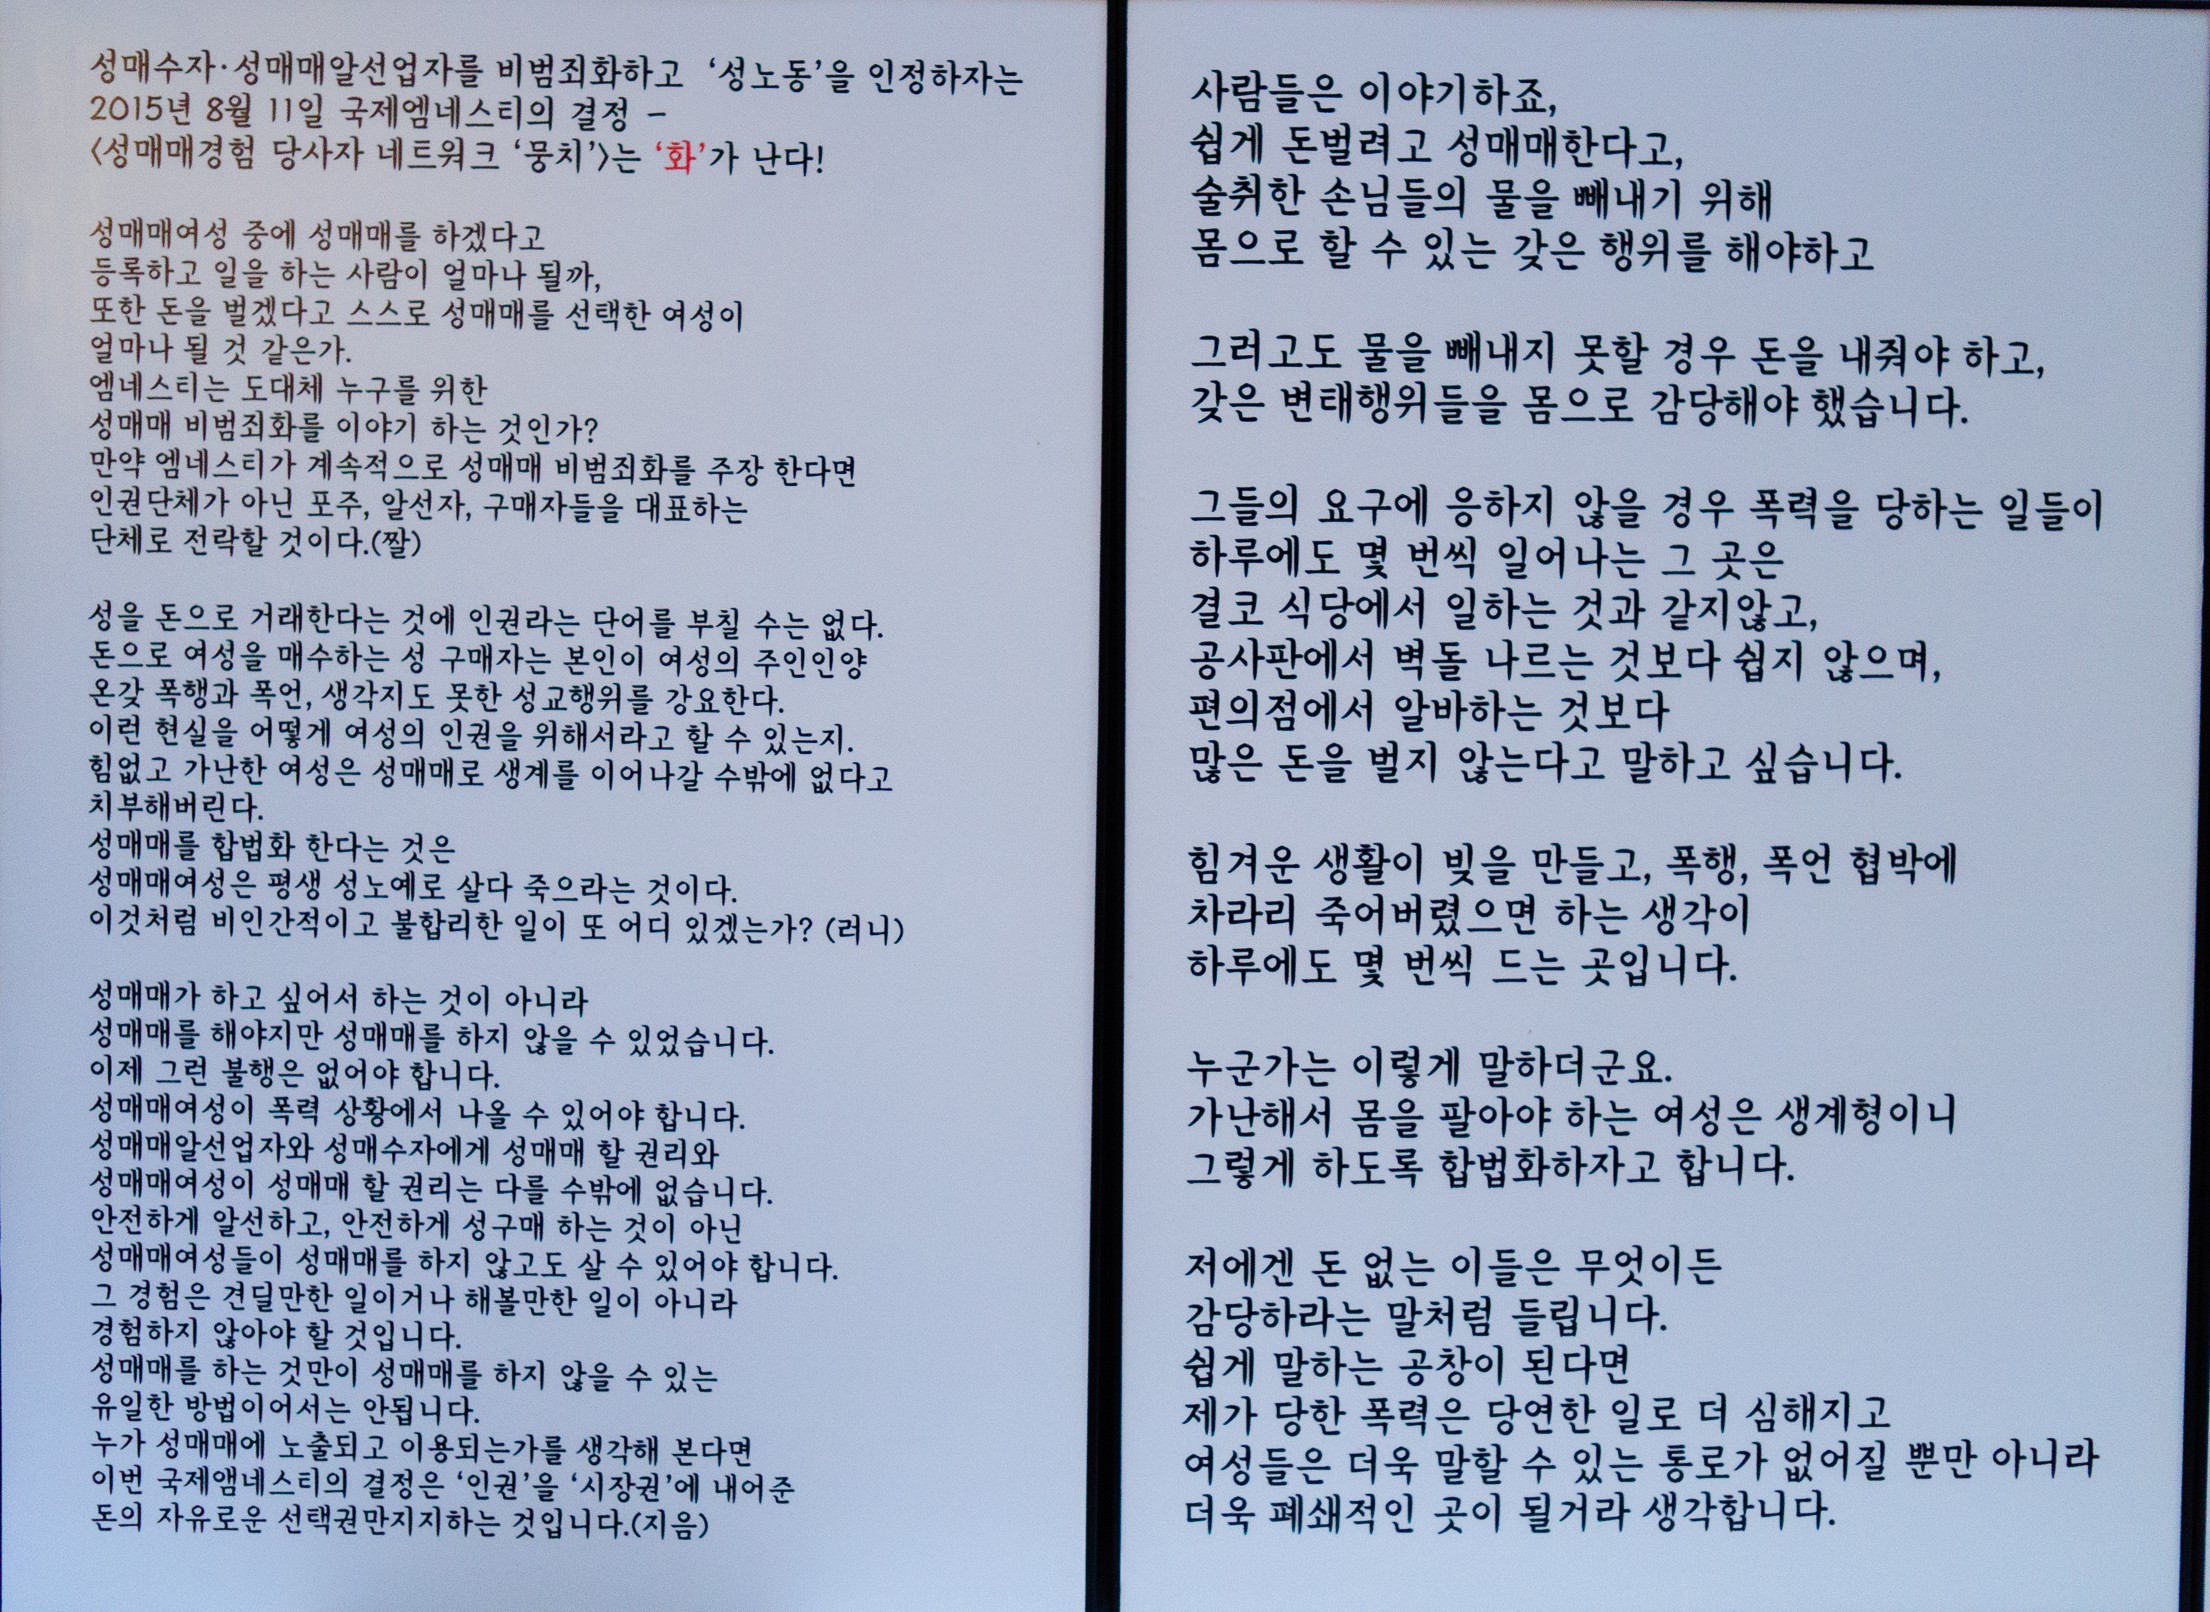 성매수자·성매매알선업자를 비범죄화하고 ‘성노동’을 인정하자는
2015년 8월 11일 국제엠네스티의 결정 –
<성매매경험 당사자 네트워크 ‘뭉치’>는 ‘화’가 난다!
성매매여성 중에 성매매를 하겠다고
등록하고 일을 하는 사람이 얼마나 될까,
또한 돈을 벌겠다고 스스로 성매매를 선택한 여성이
얼마나 될 것 같은가.
엠네스티는 도대체 누구를 위한
성매매 비범죄화를 이야기 하는 것인가?
만약 엠네스티가 계속적으로 성매매 비범죄화를 주장 한다면
인권단체가 아닌 포주, 알선자, 구매자들을 대표하는
단체로 전락할 것이다.(짤)
성을 돈으로 거래한다는 것에 인권라는 단어를 부칠 수는 없다.
돈으로 여성을 매수하는 성 구매자는 본인이 여성의 주인인양
온갖 폭행과 폭언, 생각지도 못한 성교행위를 강요한다.
이런 현실을 어떻게 여성의 인권을 위해서라고 할 수 있는지.
힘없고 가난한 여성은 성매매로 생계를 이어나갈 수밖에 없다고
치부해버린다.
성매매를 합법화 한다는 것은
성매매여성은 평생 성노예로 살다 죽으라는 것이다.
이것처럼 비인간적이고 불합리한 일이 또 어디 있겠는가? (러니)
성매매가 하고 싶어서 하는 것이 아니라
성매매를 해야지만 성매매를 하지 않을 수 있었습니다.
이제 그런 불행은 없어야 합니다.
성매매여성이 폭력 상황에서 나올 수 있어야 합니다.
성매매알선업자와 성매수자에게 성매매 할 권리와
성매매여성이 성매매 할 권리는 다를 수밖에 없습니다.
안전하게 알선하고, 안전하게 성구매 하는 것이 아닌
성매매여성들이 성매매를 하지 않고도 살 수 있어야 합니다.
그 경험은 견딜만한 일이거나 해볼만한 일이 아니라
경험하지 않아야 할 것입니다.
성매매를 하는 것만이 성매매를 하지 않을 수 있는
유일한 방법이어서는 안됩니다.
누가 성매매에 노출되고 이용되는가를 생각해 본다면
이번 국제앰네스티의 결정은 ‘인권’을 ‘시장권’에 내어준
돈의 자유로운 선택권만지지하는 것입니다.(지음)
사람들은 이야기하죠,
쉽게 돈벌려고 성매매한다고,
술취한 손님들의 물을 빼내기 위해
몸으로 할 수 있는 갖은 행위를 해야하고
그러고도 물을 빼내지 못할 경우 돈을 내줘야 하고,
갖은 변태행위들을 몸으로 감당해야 했습니다.
그들의 요구에 응하지 않을 경우 폭력을 당하는 일들이
하루에도 몇 번씩 일어나는 그 곳은
결코 식당에서 일하는 것과 같지않고,
공사판에서 벽돌 나르는 것보다 쉽지 않으며,
편의점에서 알바하는 것보다
많은 돈을 벌지 않는다고 말하고 싶습니다.
힘겨운 생활이 빚을 만들고, 폭행, 폭언 협박에
차라리 죽어버렸으면 하는 생각이
하루에도 몇 번씩 드는 곳입니다.
누군가는 이렇게 말하더군요.
가난해서 몸을 팔아야 하는 여성은 생계형이니
그렇게 하도록 합법화하자고 합니다.
저에겐 돈 없는 이들은 무엇이든
감당하라는 말처럼 들립니다.
쉽게 말하는 공창이 된다면
제가 당한 폭력은 당연한 일로 더 심해지고
여성들은 더욱 말할 수 있는 통로가 없어질 뿐만 아니라
더욱 폐쇄적인 곳이 될거라 생각합니다.